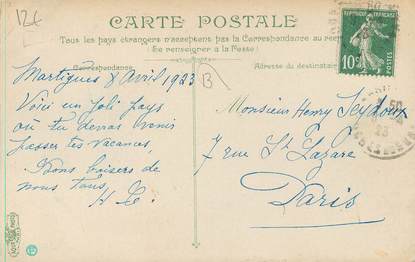 12€
CARTE POSTALE
Tous les pays étrangers n'acceptent pas la Correspondance au recto
(Se renseigner à la Poste)
Correspondance
Adresse du destinataire
RÉPUBLIQUE FRANÇAISE
10c
POSTES
B
Martigues 8 Avril 1923
Voici un joli pays
où tu devras venir
passer tes vacances,
Bons baisers de
nous tous,
Monsieur Henry Seydoux
7 rue St Lazare
Paris